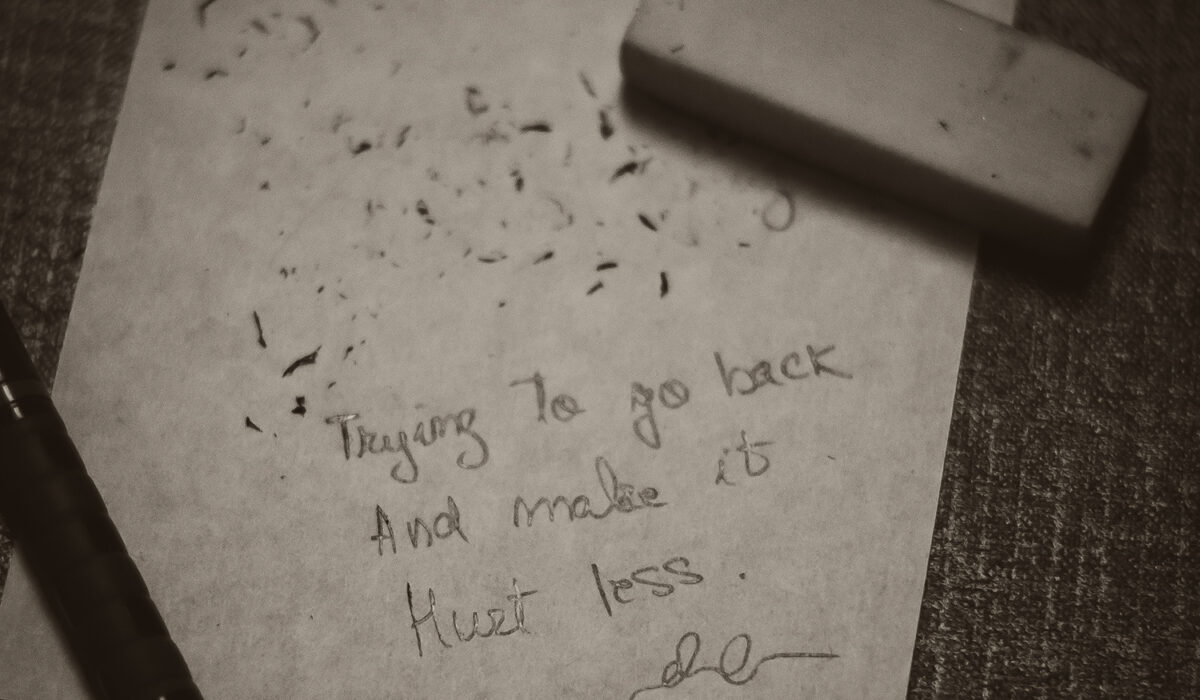 Trying to go back
And make it
Hurt less.